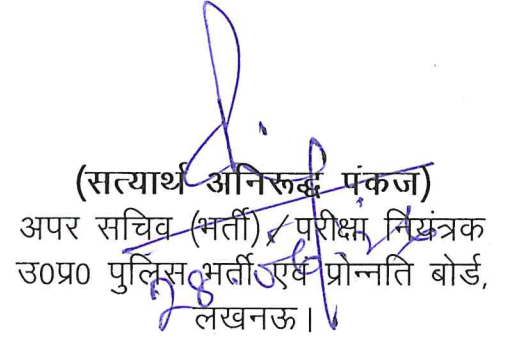 (सत्यार्थ अनिरूद्ध पंकज)
अपर सचिव (भर्ती) / परीक्षा नियंत्रक
उ०प्र० पुलिस भर्ती एवं प्रोन्नति बोर्ड,
लखनऊ।